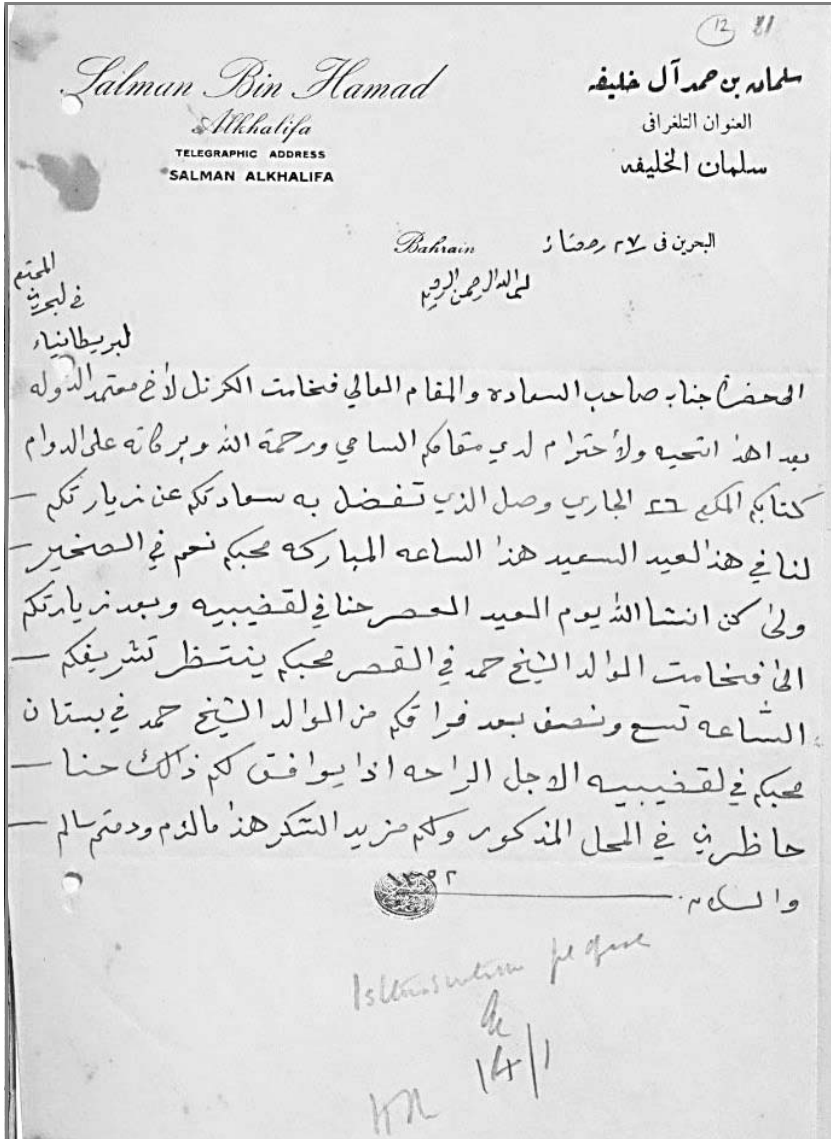 12 81
Salman Bin Hamad
Alkhalifa
TELEGRAPHIC ADDRESS
SALMAN ALKHALIFA
سلمان بن حمد آل خليفه
العنوان التلغرافى
سلمان الخليفه
Bahrain
البحرين فى ٢٧ رمضان
بسم الله الرحمن الرحيم
المحترم
في لبحرين
لبريطانياء
الى حضرة جناب صاحب السعاده والمقام العالي فخامت الكرنل لأخ معتمد الدوله
بعد اهذا التحيه ولأحترام لدي مقامكم السامي ورحمة الله وبركاته على الدوام
كتابكم المكرم ٢٦ الجاري وصل الذي تفضل به سعادتكم عن زيارتكم —
لنا في هذ العيد السعيد هذا الساعه المباركه محبكم نعم في الصخير —
ولى كن انشا الله يوم العيد العصر حنا في لقضيبيه وبعد زيارتكم
الى فخامت الوالد الشيخ حمد في القصر محبكم ينتظر تشريفكم —
الساعه تسع ونصف بعد فراقكم من الوالد الشيخ حمد في بستان
محبكم في لقضيبيه الاجل الراحه اذا يوافق لكم ذالك حنا —
حاظرين في المحل المذكور ولكم مزيد الشكر هذا مالزم ودمتم سالم —
والسلام
١٣٥٢
14/1